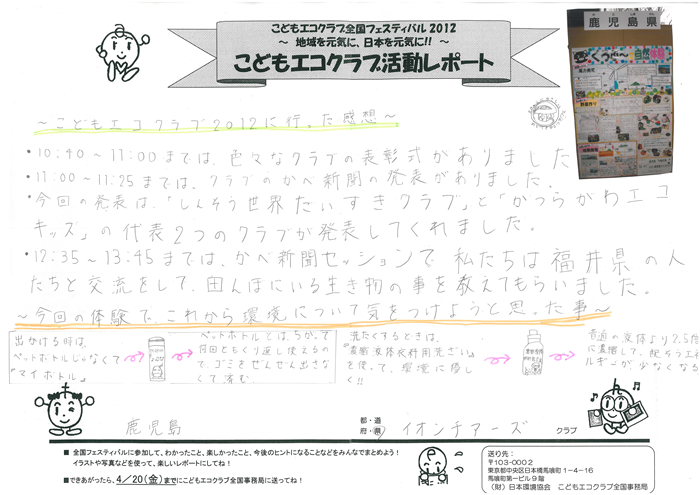 こどもエコクラブ全国フェスティバル 2012
～ 地域を元気に、日本を元気に!! ～
こどもエコクラブ活動レポート
鹿児島県
～こどもエコクラブ2012に行った感想～
・10:40～11:00までは、色々なクラブの表彰式がありました
・11:00～11:25までは、クラブのかべ新聞の発表がありました。
・今回の発表は、「しんそう世界だいすきクラブ」と「かつらがわエコ
キッズ」の代表2つのクラブが発表してくれました。
・12:35～13:45までは、かべ新聞セッションで私たちは福井県の人
たちと交流をして、田んぼにいる生き物の事を教えてもらいました。
～今回の体験で、これから環境について気をつけようと思った事～
出かける時は、
ペットボトルじゃなくて
『マイボトル』
ペットボトルとは、ちがって
何回もくり返し使えるの
で、ゴミをぜんぜん出さな
くて済む。
洗たくするときは、
『濃縮液体衣料用洗ざい』
を使って、環境に優し
く!!
普通の液体より2.5倍
に濃縮して、使うエネ
ルギーが少なくなる
鹿児島
都・道
府・県
イオンチアーズ
クラブ
■ 全国フェスティバルに参加して、わかったこと、楽しかったこと、今後のヒントになることなどをみんなでまとめよう!
イラストや写真などを使って、楽しいレポートにしてね!
■できあがったら、4/20(金)までにこどもエコクラブ全国事務局に送ってね!
送り先:
〒103-0002
東京都中央区日本橋馬喰町1-4-16
馬喰町第一ビル9階
(財)日本環境協会 こどもエコクラブ全国事務局